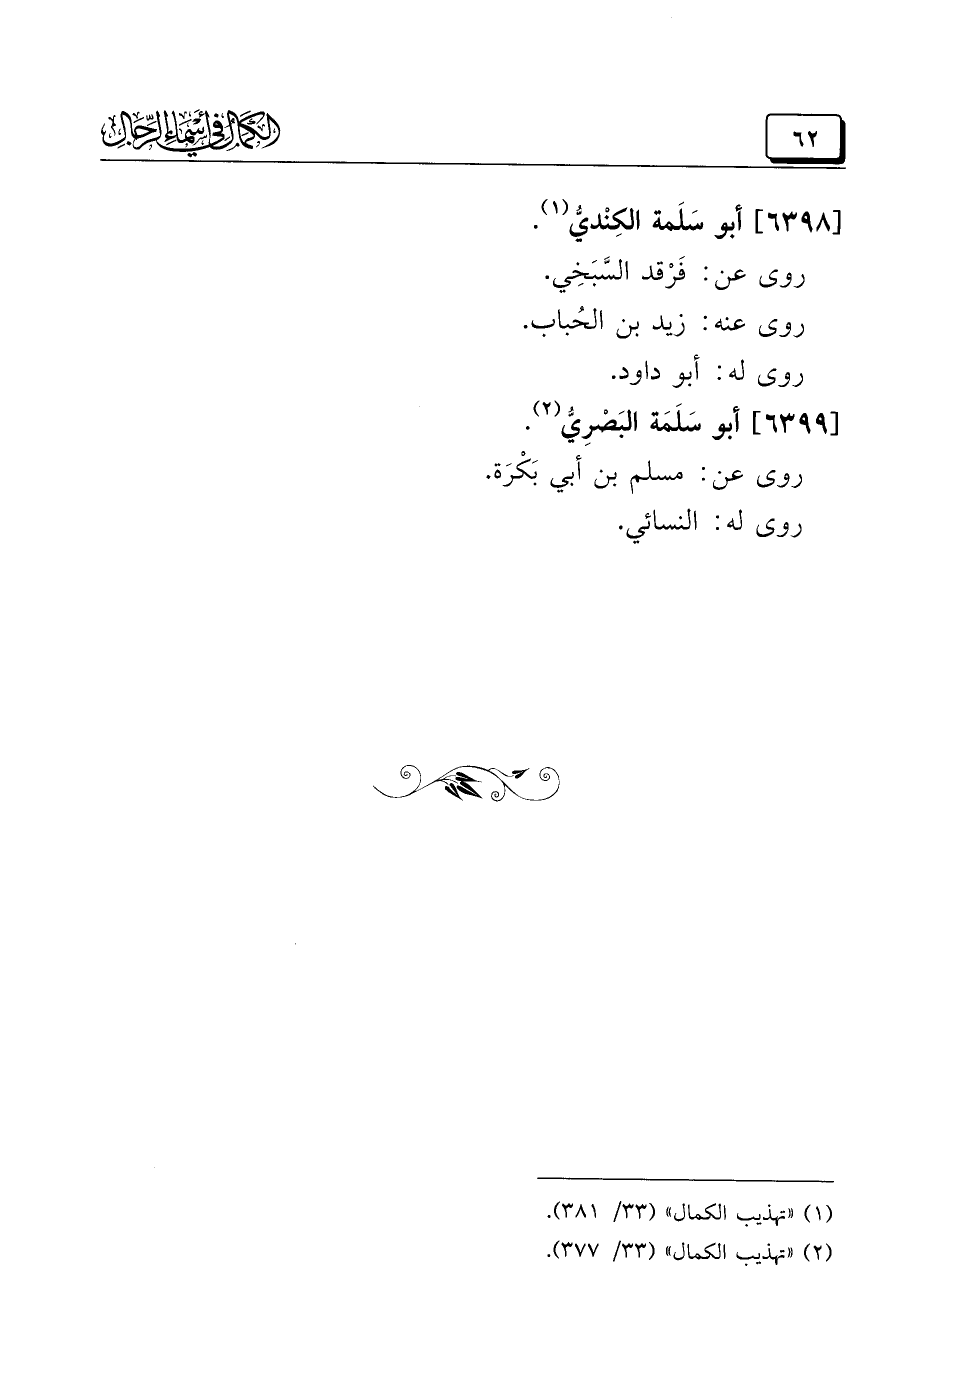 ٦٢
الكمال في أسماء الرجال
[٦٣٩٨] أبو سَلَمة الكِنْديُّ(١).
روى عن: فَرْقد السَّبَخِي.
روى عنه: زيد بن الحُباب.
روى له: أبو داود.
[٦٣٩٩] أبو سَلَمَة البَصْرِيُّ(٢).
روى عن: مسلم بن أبي بَكْرَة.
روى له: النسائي.
(١) «تهذيب الكمال» (٣٣/ ٣٨١).
(٢) «تهذيب الكمال» (٣٣/ ٣٧٧).